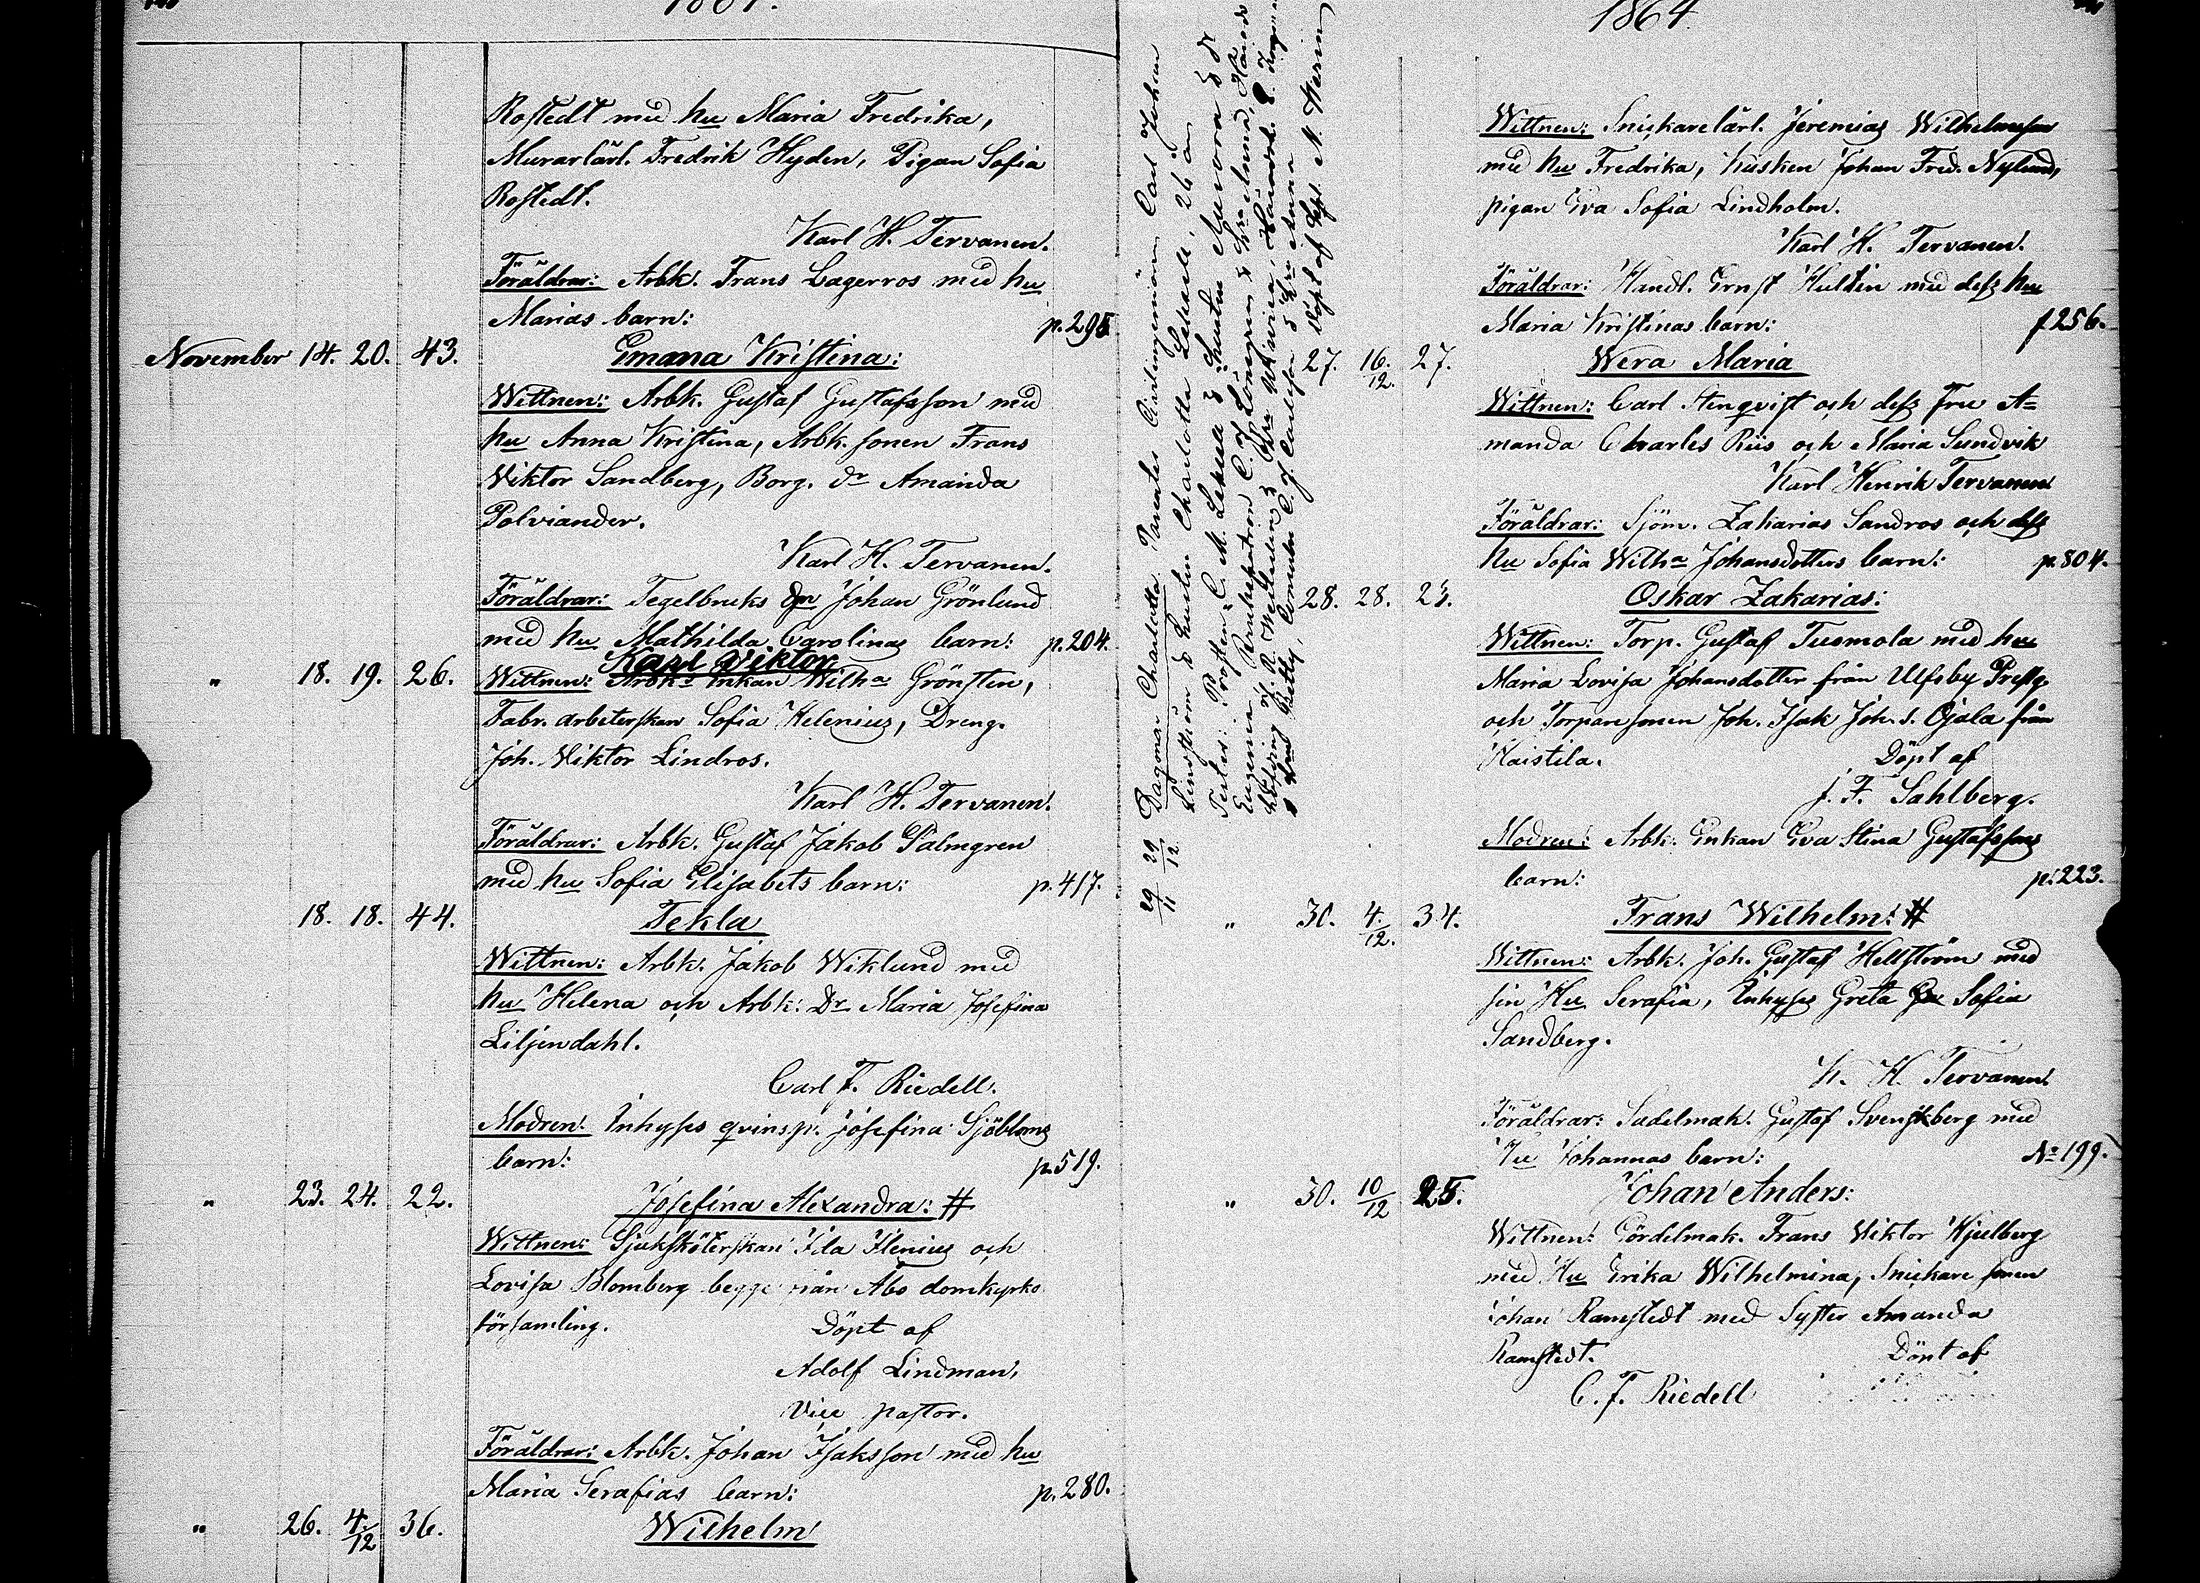 1864.
Rostedt med hu Maria Fredrika,
Murarlärl. Fredrik Hyden, Pigan Sofia
Rostedt.
Karl H. Tervanen.
Föräldrar: Arbk. Frans Lagerros med hu
Marias barn: p. 295
November 14. 20. 43. Emana Kristina:
Wittnen: Arbk. Gustaf Gustafsson med
hu Anna Kristina, Arbk. sonen Frans
Viktor Sandberg, Borg. dr Amanda
Polviander.
Karl H. Tervanen.
Föräldrar: Tegelbruks Johan Grönlund
med hu Mathilda Carolinas barn: p. 204.
Karl Viktor
" 18. 19. 26. Wittnen: Arbks Enkan Wilha Grönsten,
Fabr. arbeterskan Sofia Helenius, Dreng.
Joh. Viktor Lindros.
Karl H. Tervanen.
Föräldrar: Arbk. Gustaf Jakob Palmgren
med hu Sofia Elisabets barn: p. 417.
18. 18. 44. Tekla
Wittnen: Arbk. Jakob Wiklund med
hu Helena och Arbk: Dr Maria Josefina
Liljendahl.
Carl F. Riedell.
Modren: Inhyses qvinsp. Josefina Sjöbloms
barn: p. 519.
" 23. 24. 22. Josefina Alexandra: #
Wittnen: Sjuksköterskan Ida Ilenius och
Lovisa Blomberg begge från Åbo domkyrko
församling. Döpt af
Adolf Lindman,
Vice pastor.
Föräldrar: Arbk. Johan Isaksson med hu
Maria Serafias barn: p. 280.
" 26. 4/12 36. Wilhelm
29/11 29/12 Dagmar Charlotta. Parentes Civilingeniören Carl Johan
Lenström & hustru Charlotta Lekell, 26 år
Testes: Prosten C. M. Lekell & hustru Aurora & dr
Eugenie, Brukspatron C. J. Lönegren &
Döpt af Past. N. Merin
1864
Wittnen: Snickarelärl. Jeremias Wilhelmsson
med hu Fredrika, kusken Johan Fred. Nylund,
pigan Eva Sofia Lindholm.
Karl H. Tervanen.
Föräldrar: Handl. Ernst Hultin med dess hu
Maria Kristinas barn: p 256.
27. 16/12. 27. Wera Maria
Wittnen: Carl Stenqvist och dess fru A=
manda Charles Riis och Maria Sundvik
Karl Henrik Tervanen
Föräldrar: Sjöm. Zakarias Sandros och dess
hu Sofia Wilha Johansdotters barn: p. 804.
28. 28. 23. Oskar Zakarias:
Wittnen: Torp. Gustaf Tuomola med hu
Maria Lovisa Johansdotter från Ulfsby Prestg.
och Torparesonen Joh. Isak Joh. s. Ojala från
Haistila. Döpt af
J. F. Sahlberg.
Modren: Arbk. Enkan Eva Stina Gustafssons
barn: p. 223.
" 30. 4/12. 34. Frans Wilhelm: #
Wittnen: Arbk. Joh. Gustaf Hellström med
sin Hu Serafia, Inhyses Greta Sofia
Sandberg.
K. H. Tervanen.
Föräldrar: Sadelmak. Gustaf Svenskberg med
Hu Johannas barn: No 199.
" 30. 10/12 25. Johan Anders:
Wittnen: Gördelmak. Frans Viktor Kjelberg
med Hu Erika Wilhelmina, Snickare sonen
Johan Ramstedt med Syster Amanda
Ramstedt. Döpt af
C. F. Riedell